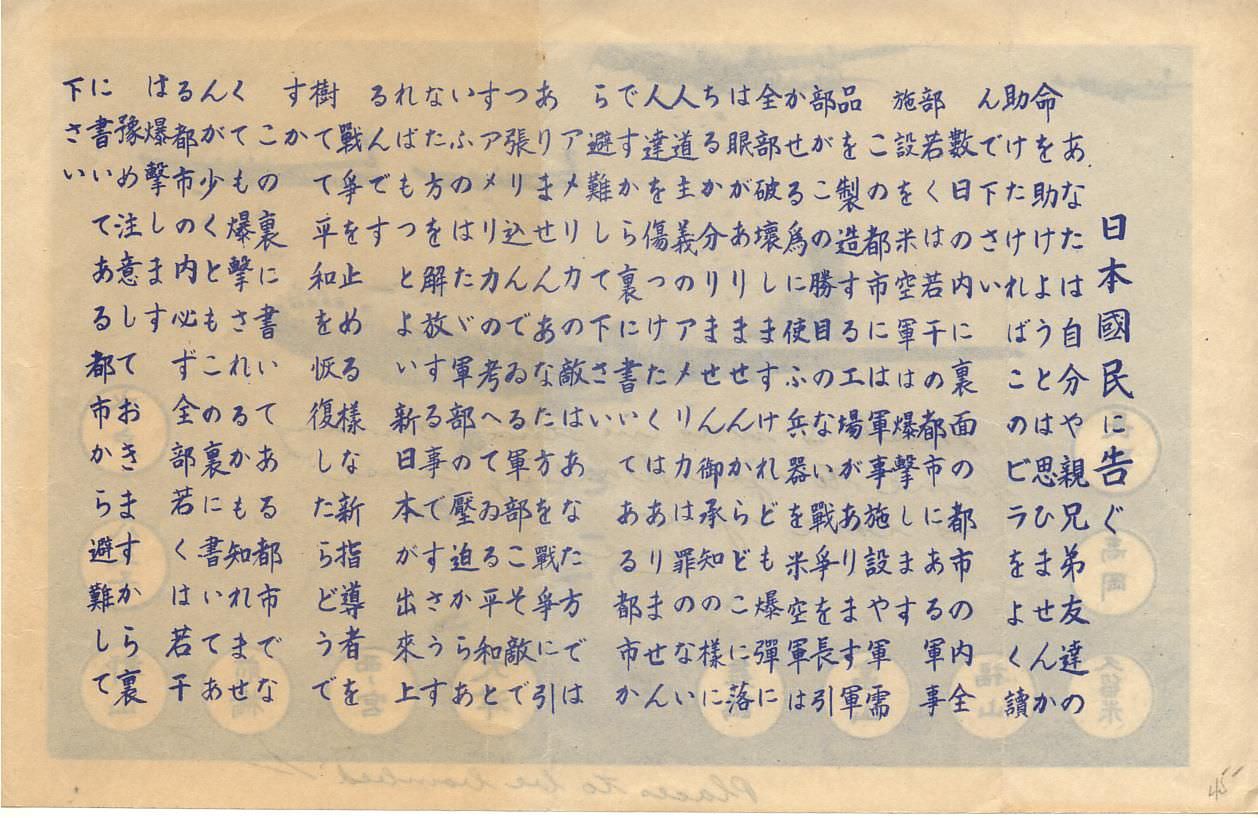 日本國民に告ぐ
あなたは自分や親兄弟友達の
命を助けようとは思ひませんか
助けたければこのビラをよく讀
んで下さい
数日の内に裏面の都市の内全
部若くは若干の都市にある軍事
施設を米空軍は爆撃します
この都市には軍事施設や軍需
品を製造する工場があります軍
部がこの勝目のない戰爭を長引
かせる爲に使ふ兵器を米空軍は
全部破壊しますけれども爆彈に
は眼がありませんからどこに落
ちるか分りません御承知の様に
人道主義のアメリカは罪のない
人達を傷つけたくはありません
ですから裏に書いてある都市か
ら避難して下さい
アメリカの敵はあなた方では
ありませんあなた方を戰爭に引
つ張り込んでゐる軍部こそ敵で
すアメリカの考へてゐる平和と
いふのはたゞ軍部の壓迫からあ
なた方を解放する事ですさうす
ればもつとよい新日本が出來上
るんです
戰爭を止める様な新指導者を
樹てて平和を恢復したらどうで
すか
この裏に書いてある都市でな
くても爆撃されるかも知れませ
んが少くともこの裏に書いてあ
る都市の内必ず全部若くは若干
は爆撃します
豫め注意しておきますから裏
に書いてある都市から避難して
下さい
高岡
久留米
福山
西ノ宮
前橋
Places to be bombed
45